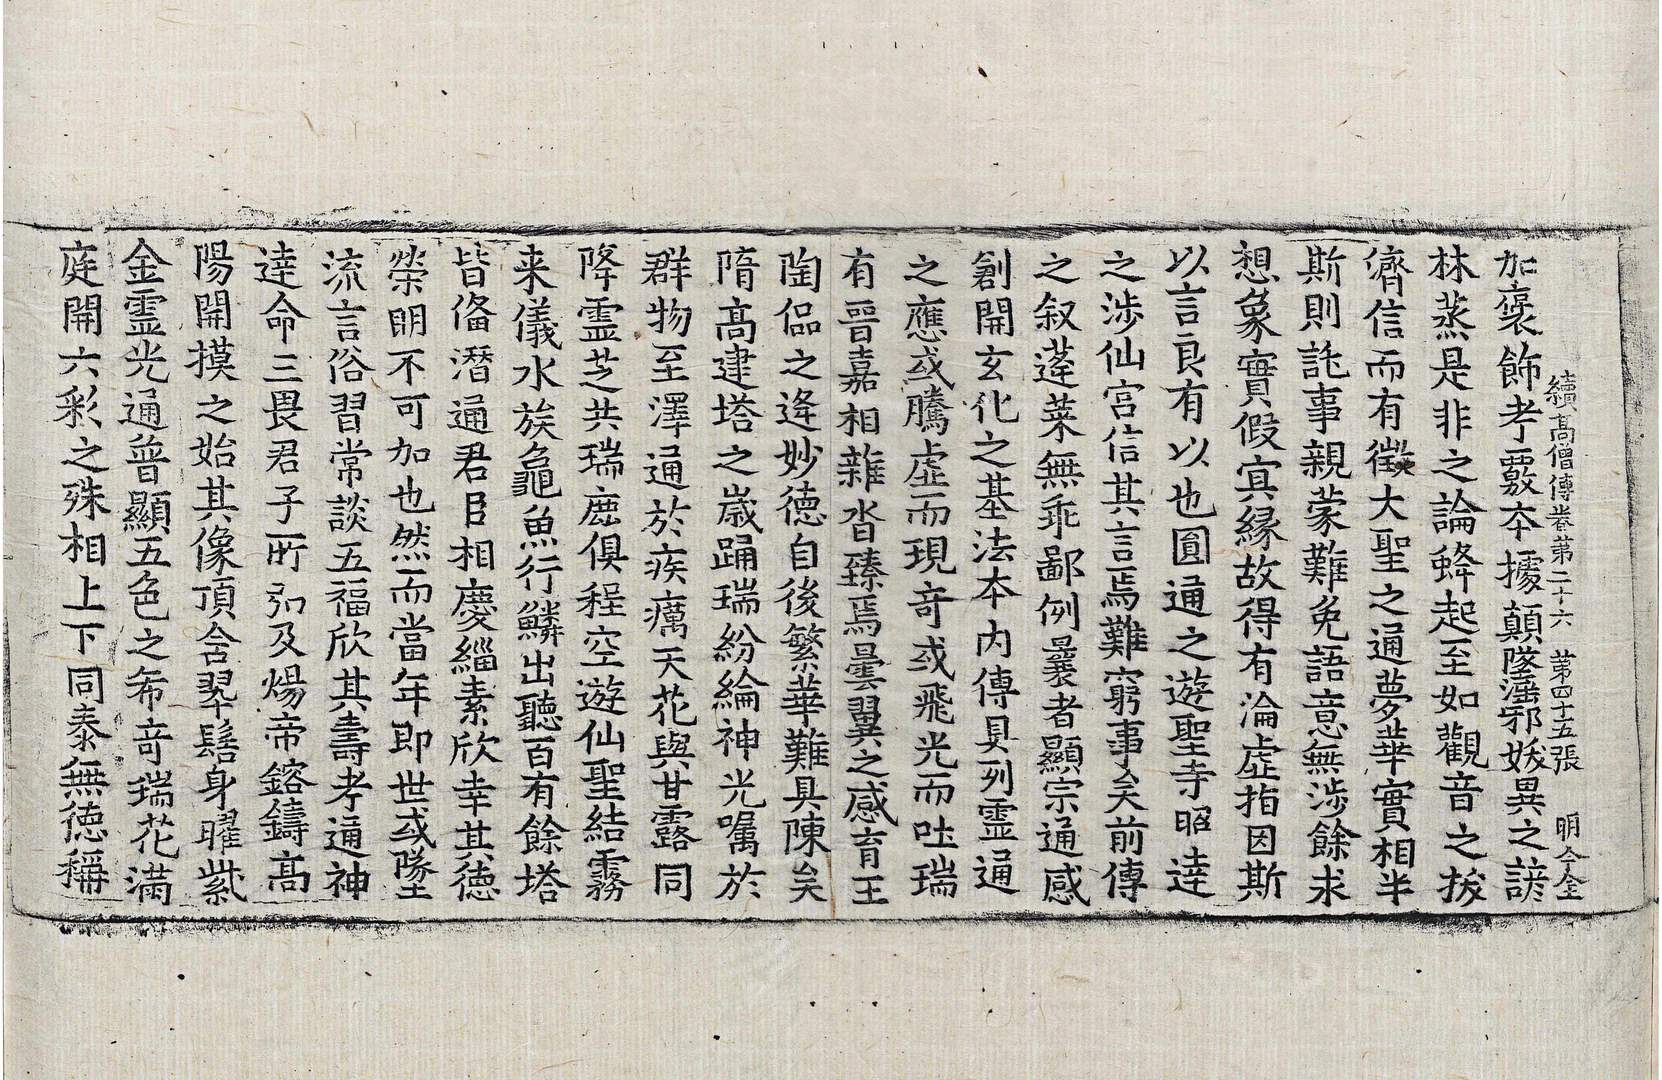 續高僧傳卷第二十六　第四十五張　明今金
加褒飾考覈本據顛墜滛邪妖異之諺
林蒸是非之論蜂起至如觀音之拔
濟信而有徵大聖之通夢華實相半
斯則託事親蒙難免語意無涉餘求
想象實假㝠緣故得有淪虛指因斯
以言良有以也圓通之遊聖寺昭達
之涉仙宮信其言焉難窮事矣前傳
之叙蓬萊無乖鄙例曩者顯宗通感
創開玄化之基法本內傳具列靈通
之應或騰虛而現奇或飛光而吐瑞
有晉嘉相雜沓臻焉曇翼之感育王
陶侃之逄妙德自後繁華難具陳矣
隋高建塔之歲踊瑞紛綸神光囑於
群物至澤通於疾癘天花與甘露同
降靈芝共瑞鹿俱程空遊仙聖結霧
来儀水族龜魚行鱗出聽百有餘塔
皆俻潛通君臣相慶緇素欣幸其德
榮明不可加也然而當年即世或墜
流言俗習常談五福欣其壽考通神
達命三畏君子所弘及煬帝鎔鑄高
陽開摸之始其像頂含翠髻身曜紫
金靈光通普顯五色之希奇瑞花滿
庭開六彩之殊相上下同泰無德稱